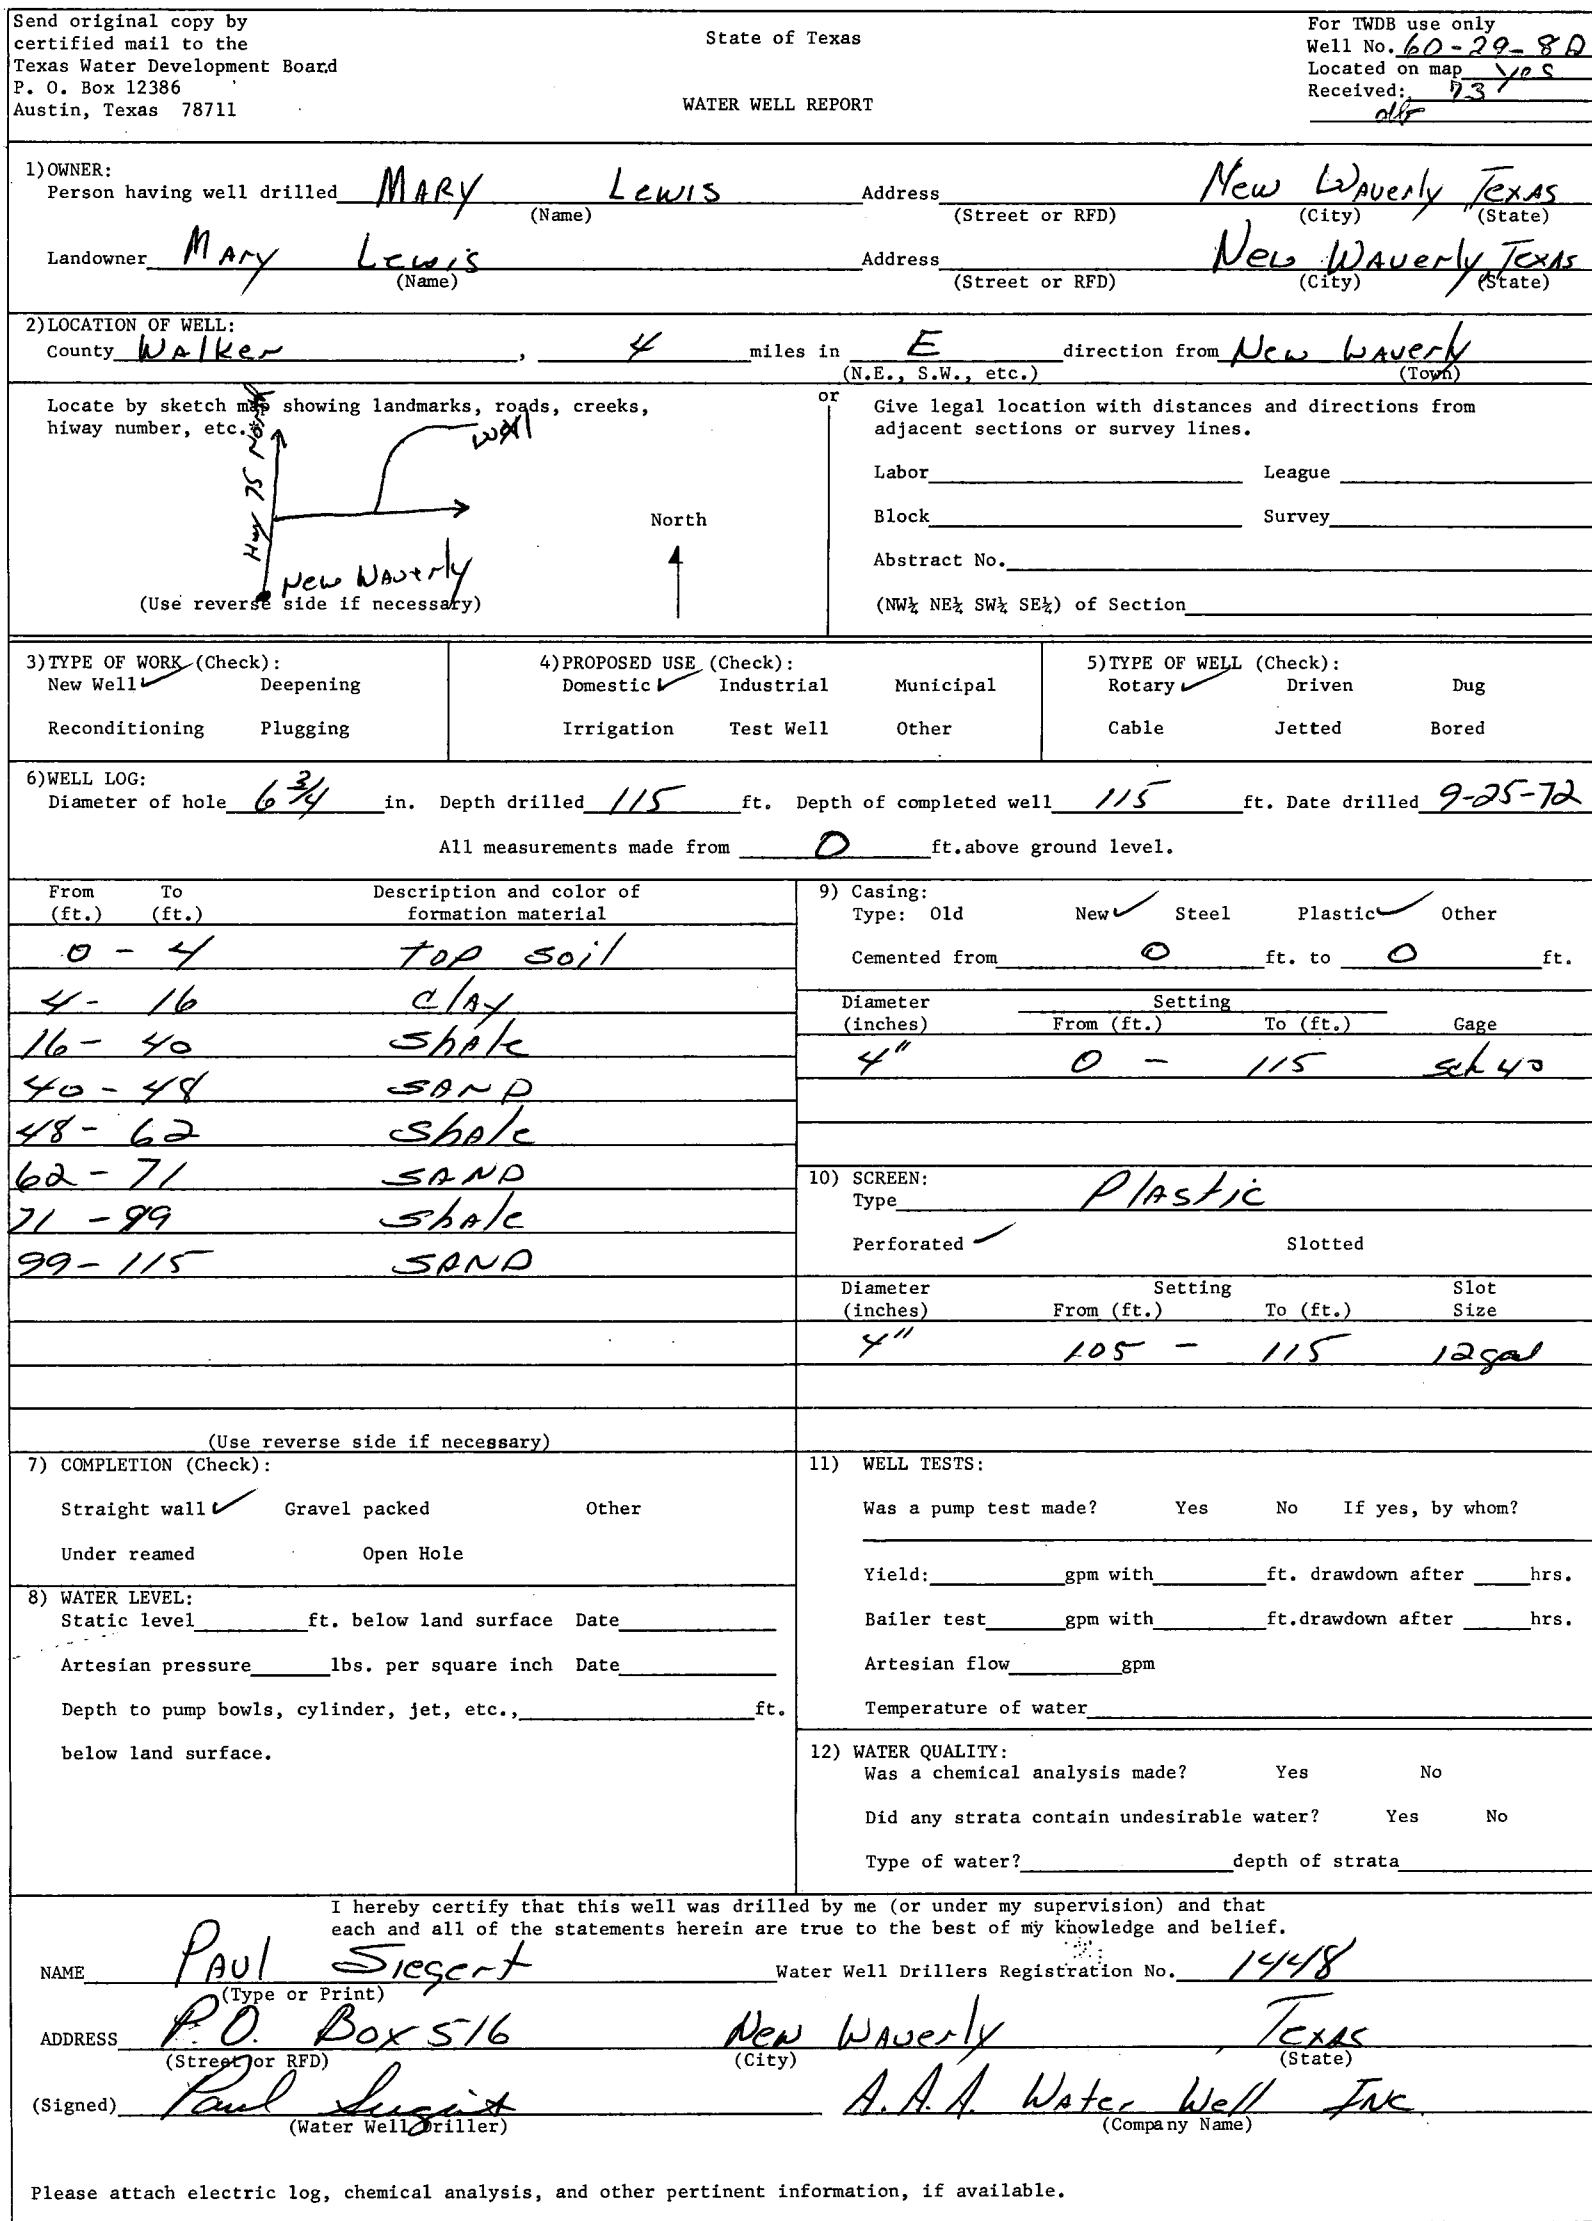 Send original copy by
certified mail to the
Texas Water Development Board
P. O. Box 12386
Austin, Texas 78711
State of Texas
WATER WELL REPORT
For TWDB use only
Well No. 60-29-8D
Located on map yes
Received: 73
1)OWNER:
Person having well drilled MARY Lewis Address New Waverly Texas
(Name) (Street or RFD) (City) (State)
Landowner Mary Lewis Address New Waverly Texas
(Name) (Street or RFD) (City) (State)
2)LOCATION OF WELL:
County Walker, 4 miles in E direction from New Waverly
(N.E., S.W., etc.) (Town)
Locate by sketch map showing landmarks, roads, creeks,
hiway number, etc.
Hwy 75 North
well
New Waverly
North
(Use reverse side if necessary)
or
Give legal location with distances and directions from
adjacent sections or survey lines.
Labor League
Block Survey
Abstract No.
(NW¼ NE¼ SW¼ SE¼) of Section
3)TYPE OF WORK (Check):
New Well ✓ Deepening
Reconditioning Plugging
4)PROPOSED USE (Check):
Domestic ✓ Industrial Municipal
Irrigation Test Well Other
5)TYPE OF WELL (Check):
Rotary ✓ Driven Dug
Cable Jetted Bored
6)WELL LOG:
Diameter of hole 6 3/4 in. Depth drilled 115 ft. Depth of completed well 115 ft. Date drilled 9-25-72
All measurements made from 0 ft.above ground level.
From To Description and color of
(ft.) (ft.) formation material
0 - 4 top soil
4 - 16 clay
16 - 40 shale
40 - 48 SAND
48 - 62 shale
62 - 71 SAND
71 - 99 shale
99 - 115 SAND
(Use reverse side if necessary)
9) Casing:
Type: Old New ✓ Steel Plastic ✓ Other
Cemented from 0 ft. to 0 ft.
Diameter Setting
(inches) From (ft.) To (ft.) Gage
4" 0 - 115 sch 40
10) SCREEN:
Type Plastic
Perforated ✓ Slotted
Diameter Setting Slot
(inches) From (ft.) To (ft.) Size
4" 105 - 115 12 gal
7) COMPLETION (Check):
Straight wall ✓ Gravel packed Other
Under reamed Open Hole
8) WATER LEVEL:
Static level ft. below land surface Date
Artesian pressure lbs. per square inch Date
Depth to pump bowls, cylinder, jet, etc., ft.
below land surface.
11) WELL TESTS:
Was a pump test made? Yes No If yes, by whom?
Yield: gpm with ft. drawdown after hrs.
Bailer test gpm with ft.drawdown after hrs.
Artesian flow gpm
Temperature of water
12) WATER QUALITY:
Was a chemical analysis made? Yes No
Did any strata contain undesirable water? Yes No
Type of water? depth of strata
I hereby certify that this well was drilled by me (or under my supervision) and that
each and all of the statements herein are true to the best of my knowledge and belief.
NAME Paul Siegert Water Well Drillers Registration No. 1448
(Type or Print)
ADDRESS P.O. Box 516 New Waverly Texas
(Street or RFD) (City) (State)
(Signed) Paul Siegert A.A.A. Water Well Inc.
(Water Well Driller) (Company Name)
Please attach electric log, chemical analysis, and other pertinent information, if available.